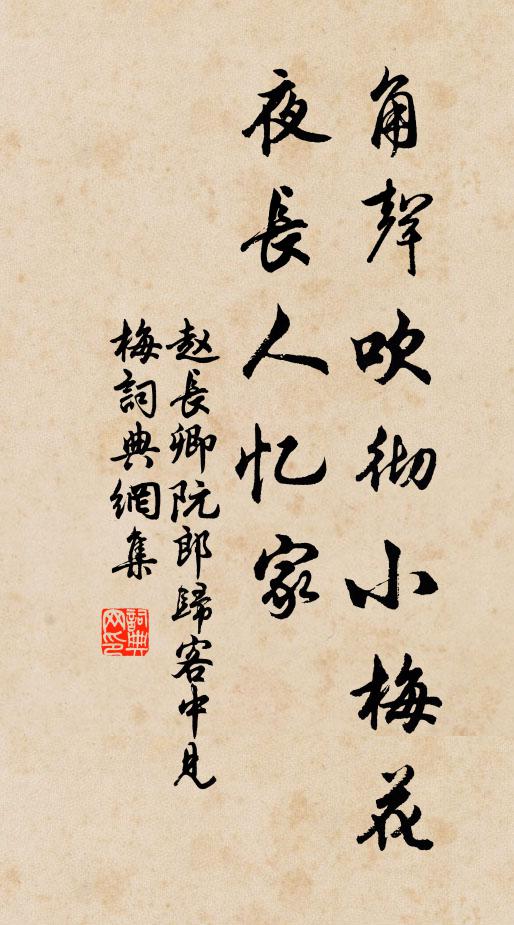 角聲吹彻小梅花
夜長人忆家
赵長卿阮郎歸客中見
梅詞典網集
詞典
网印